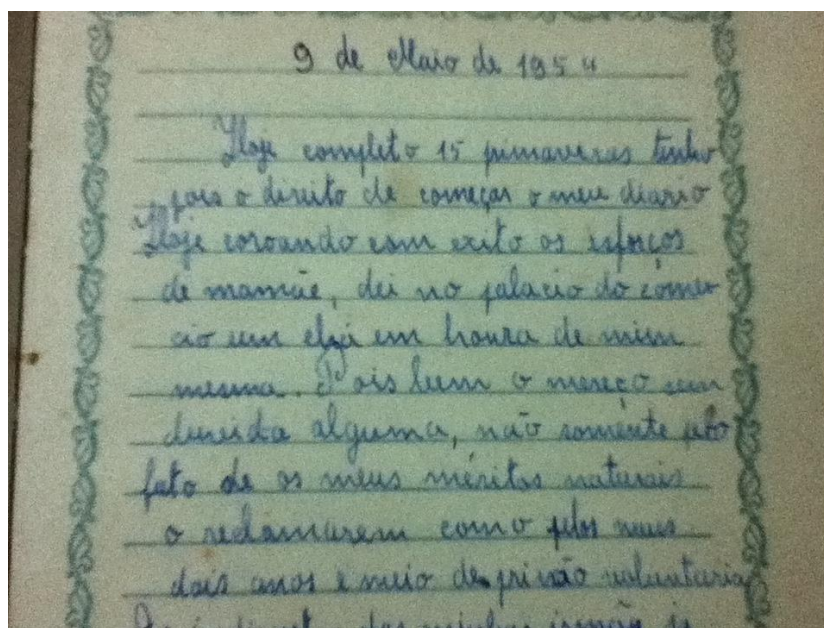 9 de Maio de 1954
Hoje completo 15 primaveras tenho
pois o direito de começar o meu diario
Hoje coroando com exito os esforços
de mamãe, dei no palacio do comer
cio um chá em honra de mim
mesma. Pois bem o mereço sem
duvida alguma, não somente pelo
fato de os meus méritos naturais
o reclamarem como pelos meus
dois anos e meio de prisão voluntaria
das minhas